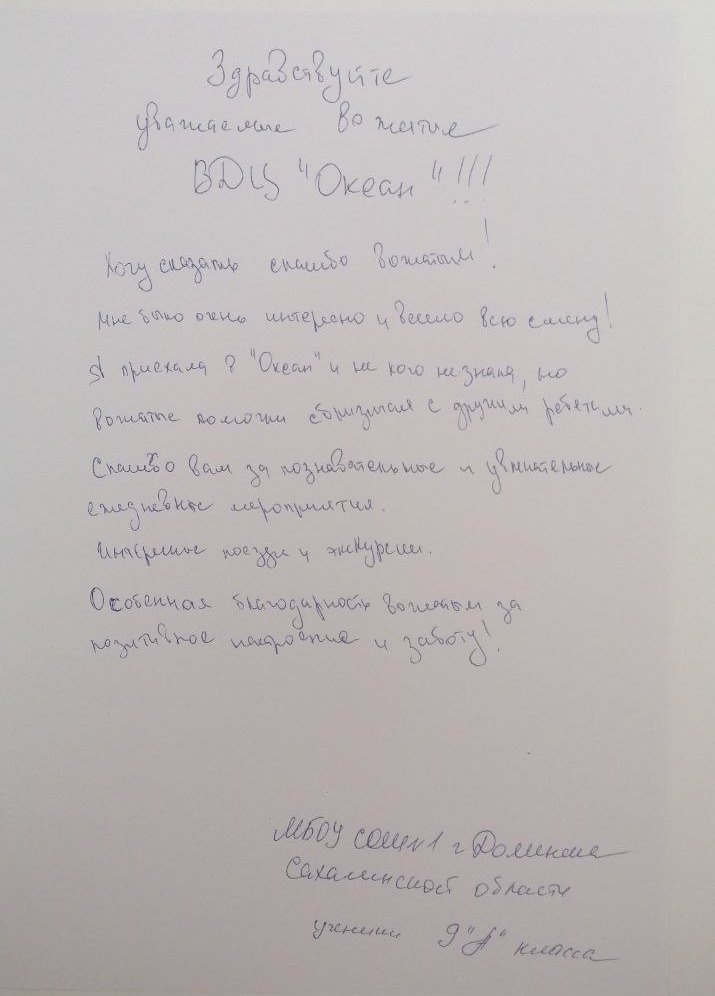 Здравствуйте
уважаемые вожатые
ВДЦ "Океан"!!!
Хочу сказать спасибо вожатым!
Мне было очень интересно и весело всю смену!
Я приехала в "Океан" и не кого не знала, но
вожатые помогли сблизится с другими ребятами.
Спасибо вам за познавательные и увлекательные
ежедневные мероприятия.
Интересные поездки и экскурсии.
Особенная благодарность вожатым за
позитивное настроение и заботу!
МБОУ СОШ№1 г Долинска
Сахалинской области
ученики 9"А" класса